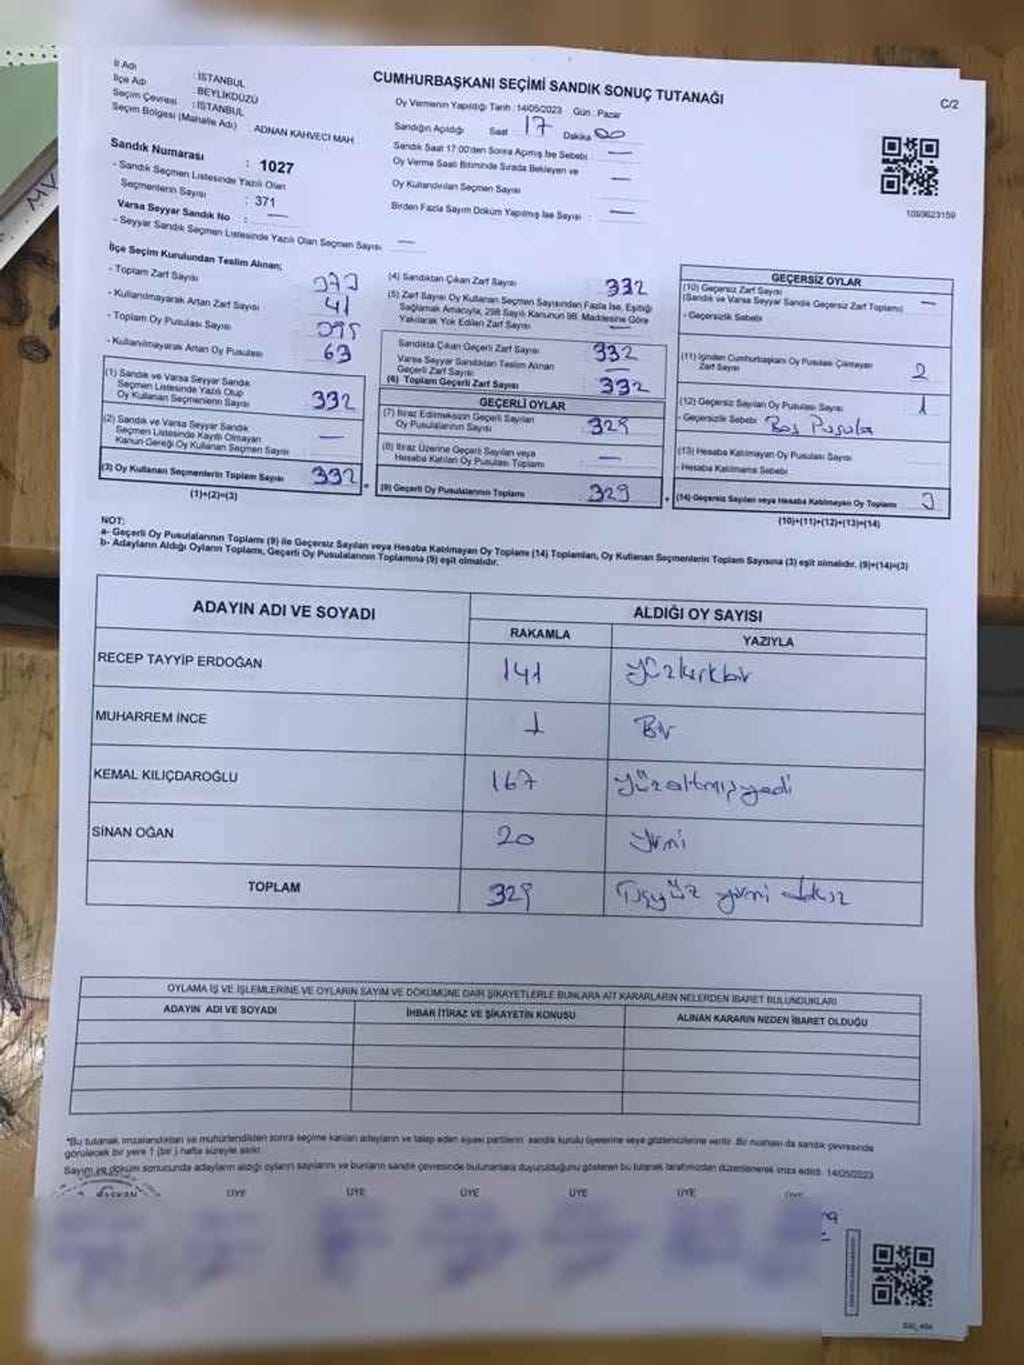 CUMHURBAŞKANI SEÇİMİ SANDIK SONUÇ TUTANAĞI
C/2
İl Adı : İSTANBUL
İlçe Adı : BEYLİKDÜZÜ
Seçim Çevresi : İSTANBUL
Seçim Bölgesi (Mahalle Adı) : ADNAN KAHVECİ MAH
Sandık Numarası : 1027
- Sandık Seçmen Listesinde Yazılı Olan
Seçmenlerin Sayısı : 371
Varsa Seyyar Sandık No : —
- Seyyar Sandık Seçmen Listesinde Yazılı Olan Seçmen Sayısı —
Oy Vermenin Yapıldığı Tarih : 14/05/2023 Gün : Pazar
Sandığın Açıldığı Saat 17 Dakika 00
Sandık Saat 17:00'den Sonra Açılmış İse Sebebi —
Oy Verme Saati Bitiminde Sırada Bekleyen ve —
Oy Kullandırılan Seçmen Sayısı
Birden Fazla Sayım Döküm Yapılmış İse Sayısı : —
1093623159
İlçe Seçim Kurulundan Teslim Alınan;
- Toplam Zarf Sayısı
- Kullanılmayarak Artan Zarf Sayısı 41
- Toplam Oy Pusulası Sayısı
- Kullanılmayarak Artan Oy Pusulası 63
(1) Sandık ve Varsa Seyyar Sandık
Seçmen Listesinde Yazılı Olup
Oy Kullanan Seçmenlerin Sayısı 332
(2) Sandık ve Varsa Seyyar Sandık
Seçmen Listesinde Kayıtlı Olmayan
Kanun Gereği Oy Kullanan Seçmen Sayısı —
(3) Oy Kullanan Seçmenlerin Toplam Sayısı 332
(1)+(2)=(3)
(4) Sandıktan Çıkan Zarf Sayısı 332
(5) Zarf Sayısı Oy Kullanan Seçmen Sayısından Fazla İse, Eşitliği
Sağlamak Amacıyla, 298 Sayılı Kanunun 98. Maddesine Göre
Yakılarak Yok Edilen Zarf Sayısı —
Sandıkta Çıkan Geçerli Zarf Sayısı 332
Varsa Seyyar Sandıktan Teslim Alınan
Geçerli Zarf Sayısı —
(6) Toplam Geçerli Zarf Sayısı 332
GEÇERLİ OYLAR
(7) İtiraz Edilmeksizin Geçerli Sayılan
Oy Pusulalarının Sayısı 329
(8) İtiraz Üzerine Geçerli Sayılan veya
Hesaba Katılan Oy Pusulası Toplamı —
(9) Geçerli Oy Pusulalarının Toplamı 329
GEÇERSİZ OYLAR
(10) Geçersiz Zarf Sayısı —
(Sandık ve Varsa Seyyar Sandık Geçersiz Zarf Toplamı)
- Geçersizlik Sebebi
(11) İçinden Cumhurbaşkanı Oy Pusulası Çıkmayan
Zarf Sayısı 2
(12) Geçersiz Sayılan Oy Pusulası Sayısı 1
- Geçersizlik Sebebi Boş Pusula
(13) Hesaba Katılmayan Oy Pusulası Sayısı
- Hesaba Katılmama Sebebi
(14) Geçersiz Sayılan veya Hesaba Katılmayan Oy Toplamı 3
(10)+(11)+(12)+(13)=(14)
NOT:
a- Geçerli Oy Pusulalarının Toplamı (9) ile Geçersiz Sayılan veya Hesaba Katılmayan Oy Toplamı (14) Toplamları, Oy Kullanan Seçmenlerin Toplam Sayısına (3) eşit olmalıdır. (9)+(14)=(3)
b- Adayların Aldığı Oyların Toplamı, Geçerli Oy Pusulalarının Toplamına (9) eşit olmalıdır.
ADAYIN ADI VE SOYADI
ALDIĞI OY SAYISI
RAKAMLA YAZIYLA
RECEP TAYYİP ERDOĞAN 141 yüzkırkbir
MUHARREM İNCE 1 Bir
KEMAL KILIÇDAROĞLU 167 yüzaltmışyedi
SİNAN OĞAN 20 yirmi
TOPLAM 329 Üçyüz yirmi dokuz
OYLAMA İŞ VE İŞLEMLERİNE VE OYLARIN SAYIM VE DÖKÜMÜNE DAİR ŞİKAYETLERLE BUNLARA AİT KARARLARIN NELERDEN İBARET BULUNDUKLARI
ADAYIN ADI VE SOYADI İHBAR İTİRAZ VE ŞİKAYETİN KONUSU ALINAN KARARIN NEDEN İBARET OLDUĞU
*Bu tutanak imzalandıktan ve mühürlendikten sonra seçime katılan adayların ve talep eden siyasi partilerin sandık kurulu üyelerine veya gözlemcilerine verilir. Bir nüshası da sandık çevresinde
görülecek bir yere 1 (bir) hafta süreyle asılır.
Sayım ve döküm sonucunda adayların aldığı oyların sayılarını ve bunların sandık çevresinde bulunanlara duyurulduğunu gösteren bu tutanak tarafımızdan düzenlenerek imza edildi. 14/05/2023
BAŞKAN ÜYE ÜYE ÜYE ÜYE ÜYE ÜYE